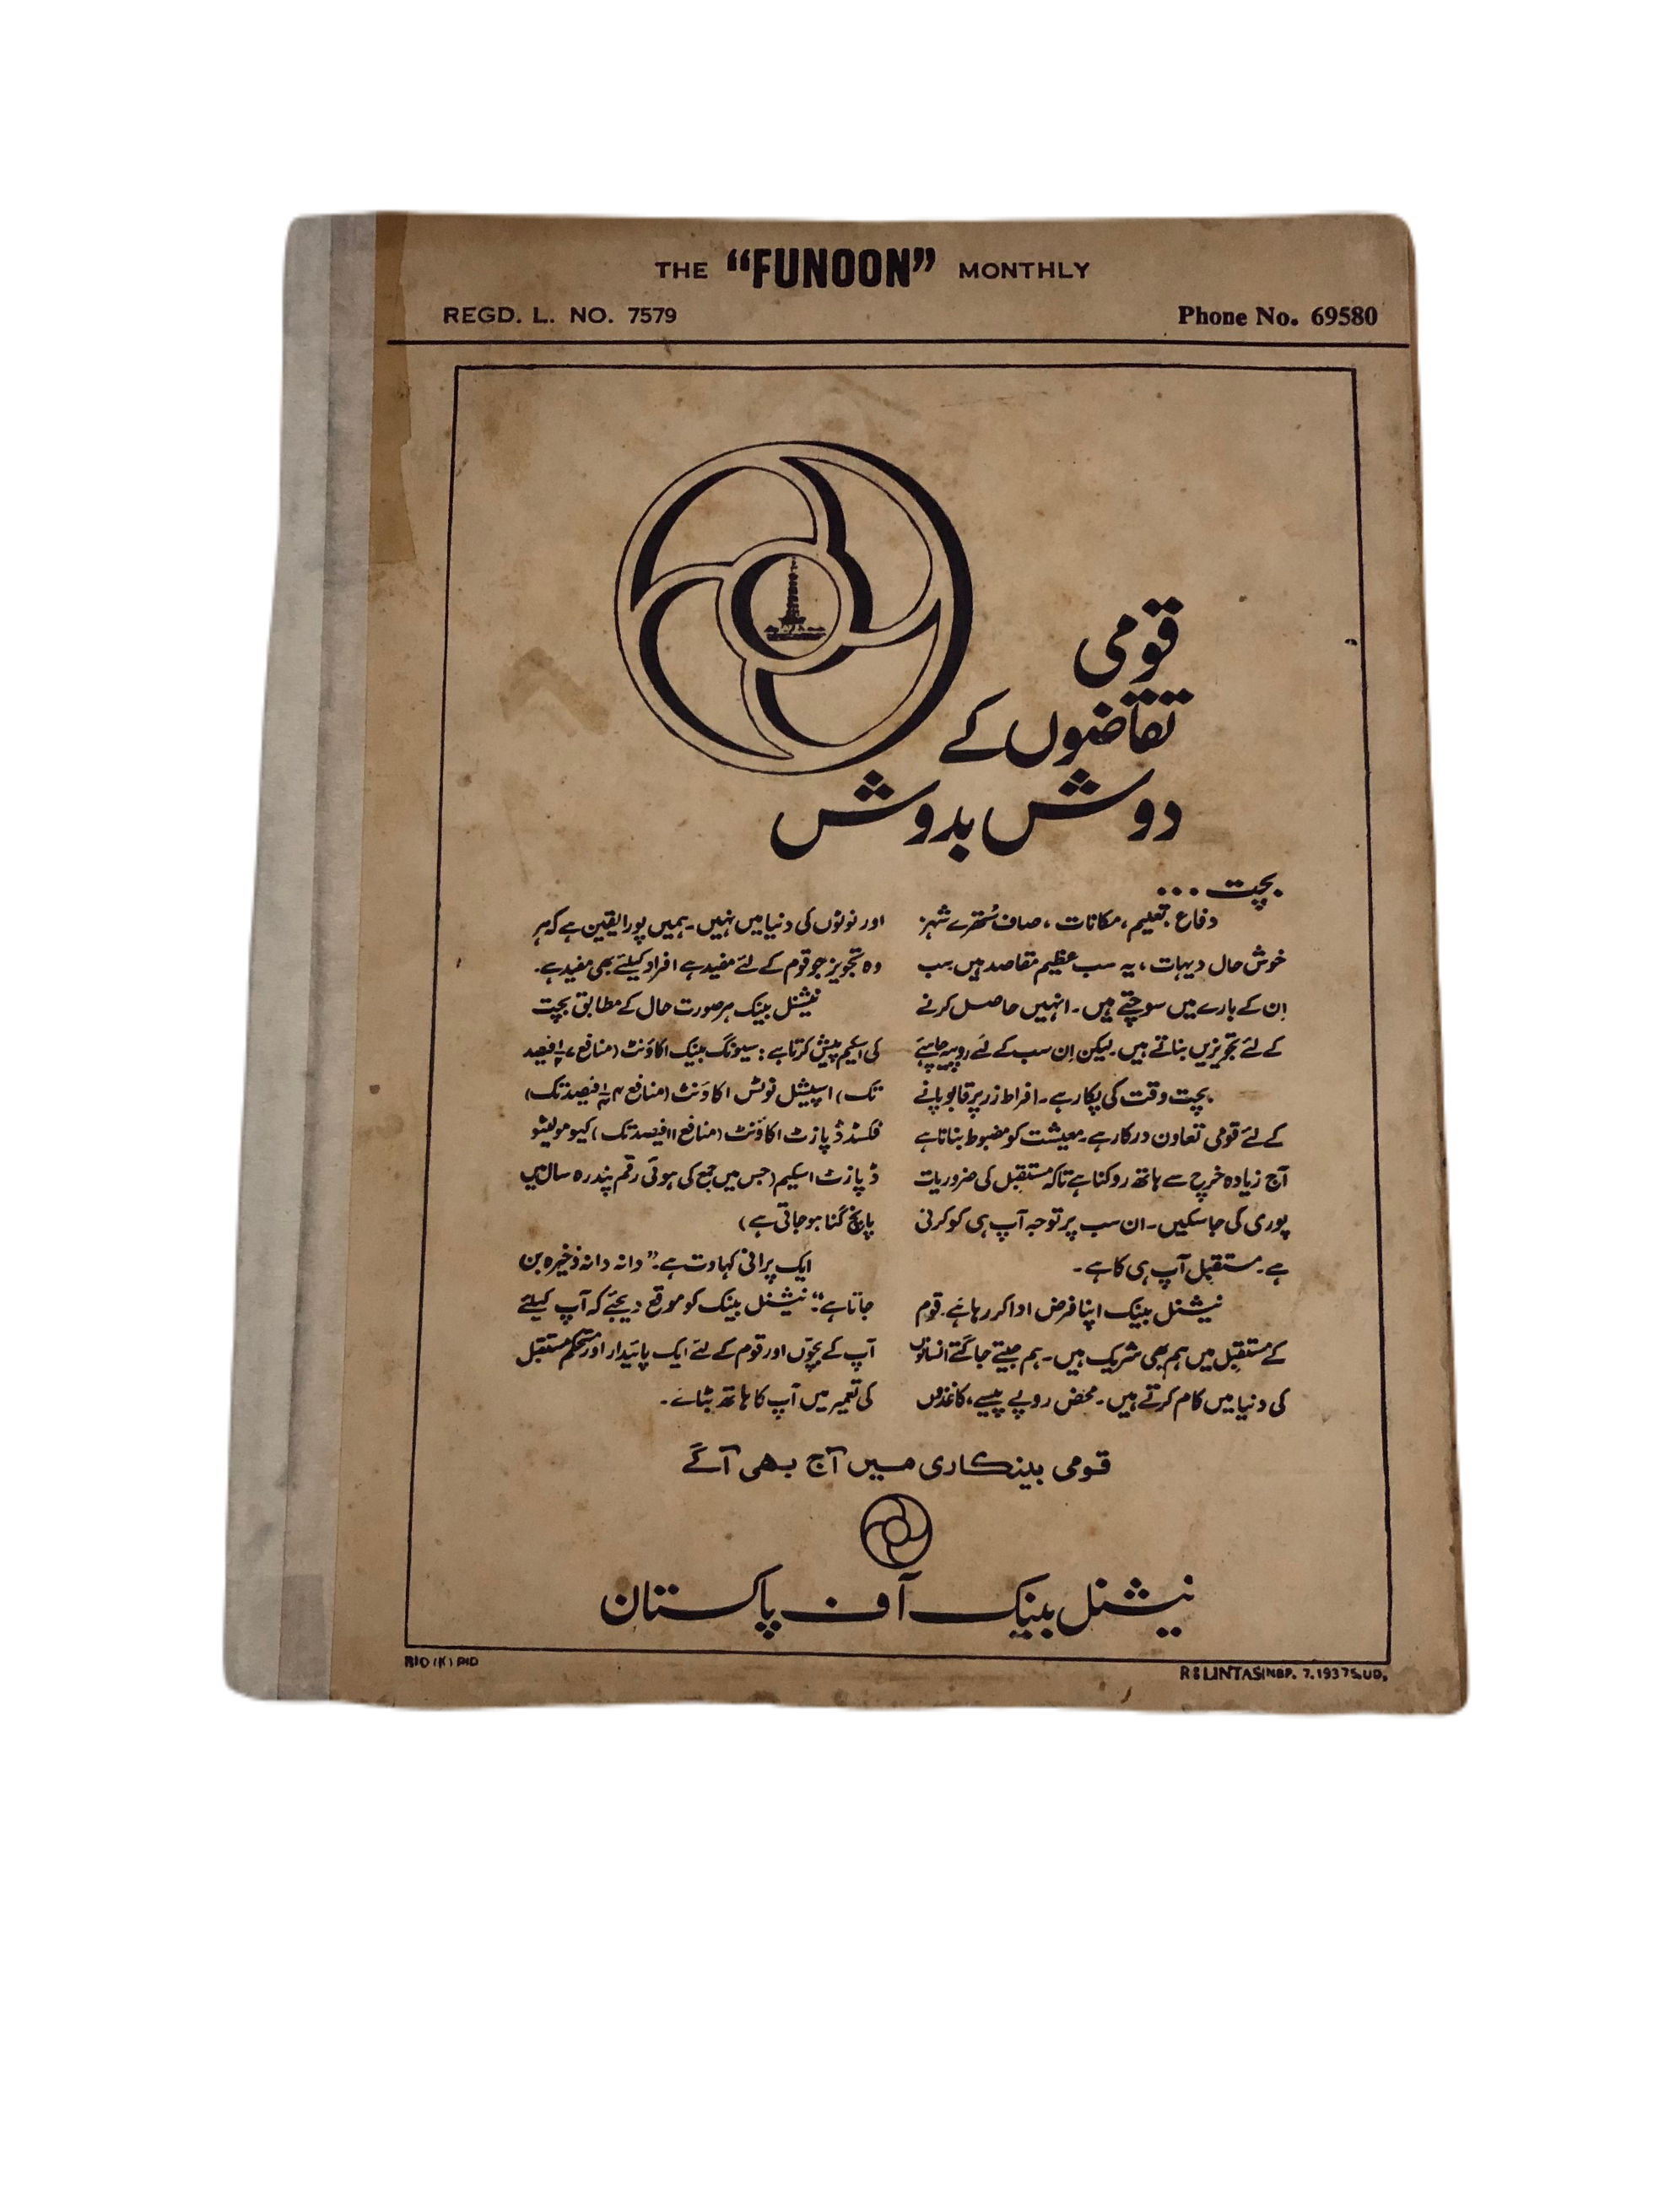 THE “FUNOON” MONTHLY
REGD. L. NO. 7579
Phone No. 69580
قومی
تقاضوں کے
دوش بدوش
بچت...
دفاع، تعلیم، مکانات، صاف سُتھرے شہر
خوش حال دیہات، یہ سب عظیم مقاصد ہیں سب
اِن کے بارے میں سوچتے ہیں۔ انہیں حاصل کرنے
کے لئے تجویزیں بناتے ہیں۔ لیکن اِن سب کے لئے روپیہ چاہیئے
بچت وقت کی پکار ہے۔ افراط زر پر قابو پانے
کے لئے قومی تعاون درکار ہے۔ معیشت کو مضبوط بنانا ہے
آج زیادہ خرچ سے ہاتھ روکنا ہے تاکہ مستقبل کی ضروریات
پوری کی جا سکیں۔ ان سب پر توجہ آپ ہی کو کرنی
ہے۔ مستقبل آپ ہی کا ہے۔
نیشنل بینک اپنا فرض ادا کر رہا ہے۔ قوم
کے مستقبل میں ہم بھی شریک ہیں۔ ہم جیتے جاگتے انسانوں
کی دنیا میں کام کرتے ہیں۔ محض روپے پیسے، کاغذوں
اور نوٹوں کی دنیا میں نہیں۔ ہمیں پورا یقین ہے کہ ہر
وہ تجویز جو قوم کے لئے مفید ہے افراد کیلئے بھی مفید ہے۔
نیشنل بینک ہر صورت حال کے مطابق بچت
کی اسکیم پیش کرتا ہے: سیونگ بینک اکاؤنٹ (منافع فیصد
تک) اسپیشل نوٹس اکاؤنٹ (منافع فیصد تک)
فکسڈ ڈپازٹ اکاؤنٹ (منافع ۱۱ فیصد تک) کیومولیٹو
ڈپازٹ اسکیم (جس میں جمع کی ہوئی رقم پندرہ سال میں
پانچ گنا ہو جاتی ہے)
ایک پرانی کہاوت ہے۔ ”دانہ دانہ ذخیرہ بن
جاتا ہے“۔ نیشنل بینک کو موقع دیجئے کہ آپ کیلئے
آپ کے بچّوں اور قوم کے لئے ایک پائیدار اور مستحکم مستقبل
کی تعمیر میں آپ کا ہاتھ بٹائے۔
قومی بینکاری میں آج بھی آگے
نیشنل بینک آف پاکستان
PID (K) PID
R&LINTAS